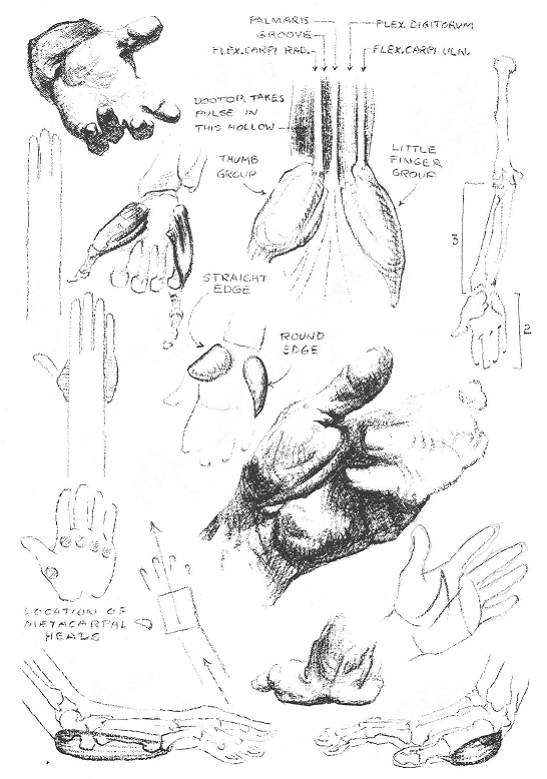 PALMARIS
GROOVE
FLEX.CARPI RAD.
FLEX. DIGITORUM
FLEX.CARPI ULN.
DOCTOR TAKES
PULSE IN
THIS HOLLOW
THUMB
GROUP
LITTLE
FINGER
GROUP
3
2
STRAIGHT
EDGE
ROUND
EDGE
LOCATION OF
METACARPAL
HEADS